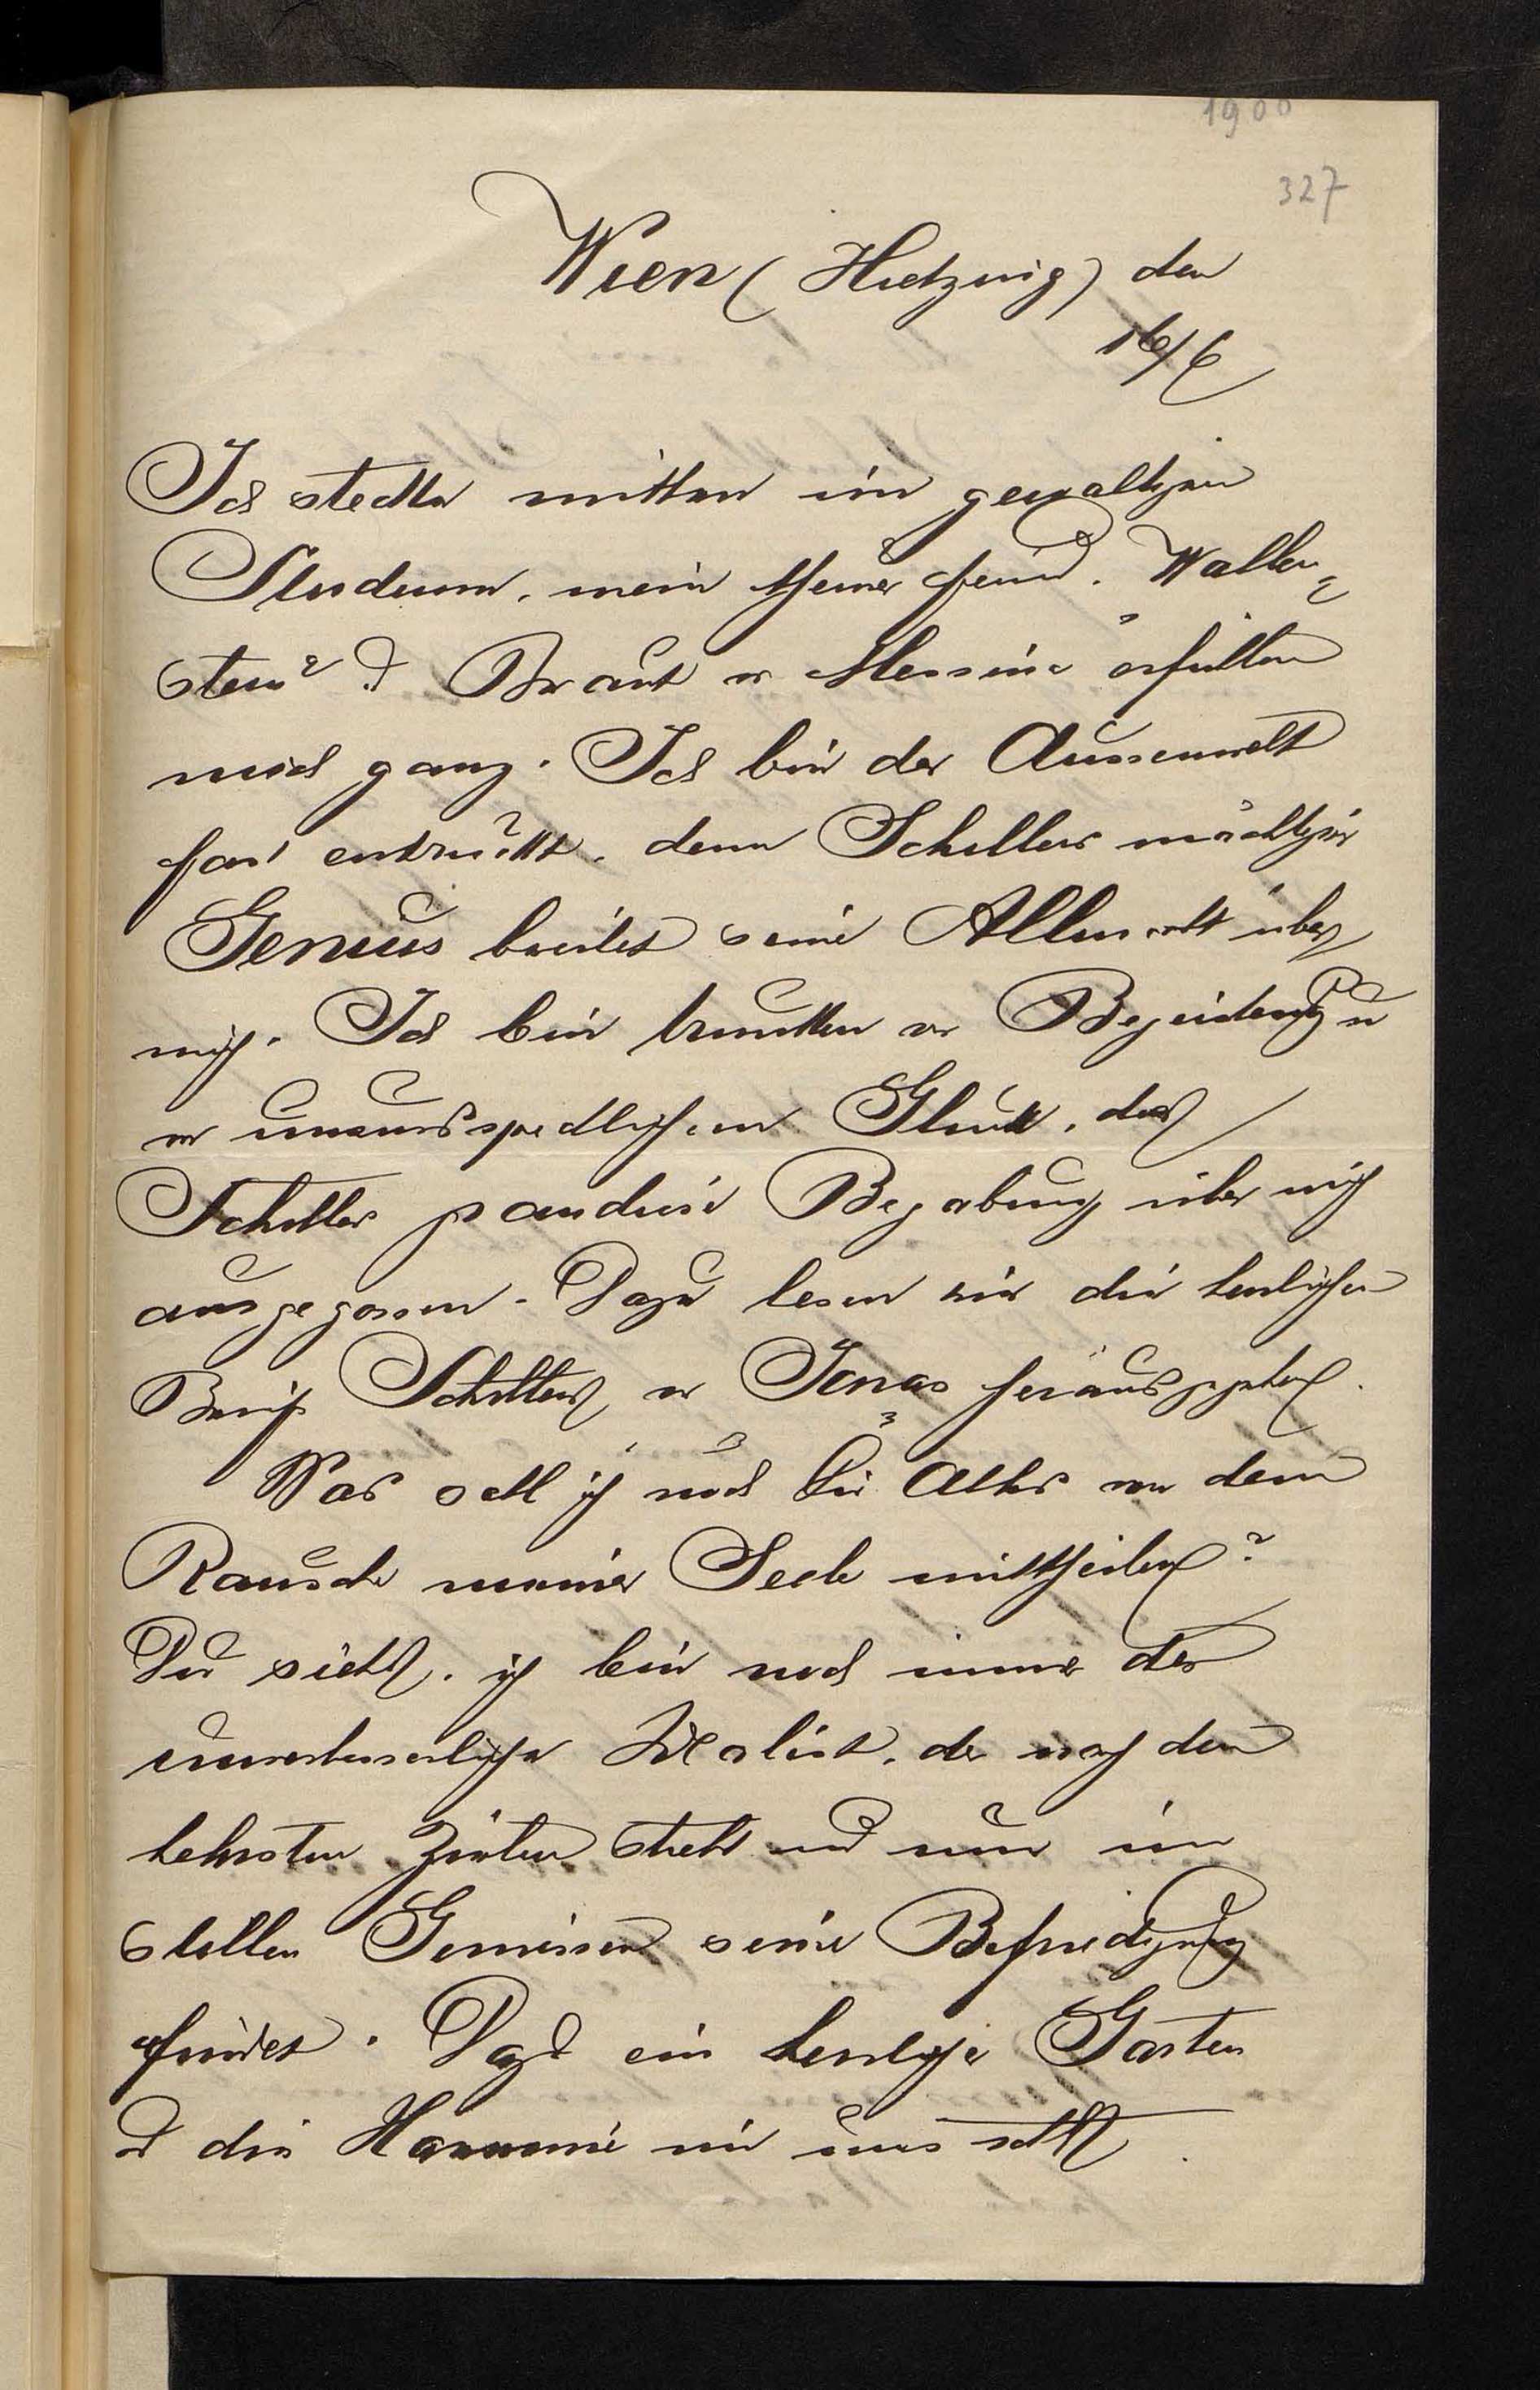 1900
327
Wien (Hietzing) den
16/6
Ich stecke mitten im gewaltigen
Studium, mein theurer Freund. Wallen=
stein & Braut v Messina erfüllen
mich ganz. Ich bin der Aussenwelt
fast entrückt, denn Schillers mächtiger
Genius breitet seine Allgewalt über
mich. Ich bin trunken vor Begeisterung u
v unaussprechlichem Glück, das
Schillers grandiose Begabung über mich
ausgegossen. Dazu lesen wir die herrlichen
Briefe Schillers, v Jonas herausgegeben.
Was soll ich noch Dir Alles von dem
Rausche meiner Seele mittheilen?
Du siehst, ich bin noch immer der
unverbesserliche Idealist, der nach den
hehrsten Zielen strebt und nur im
stillen Geniessen seine Befriedigung
findet. Dazu ein herrlicher Garten
& die Harmonie mit uns selbst.